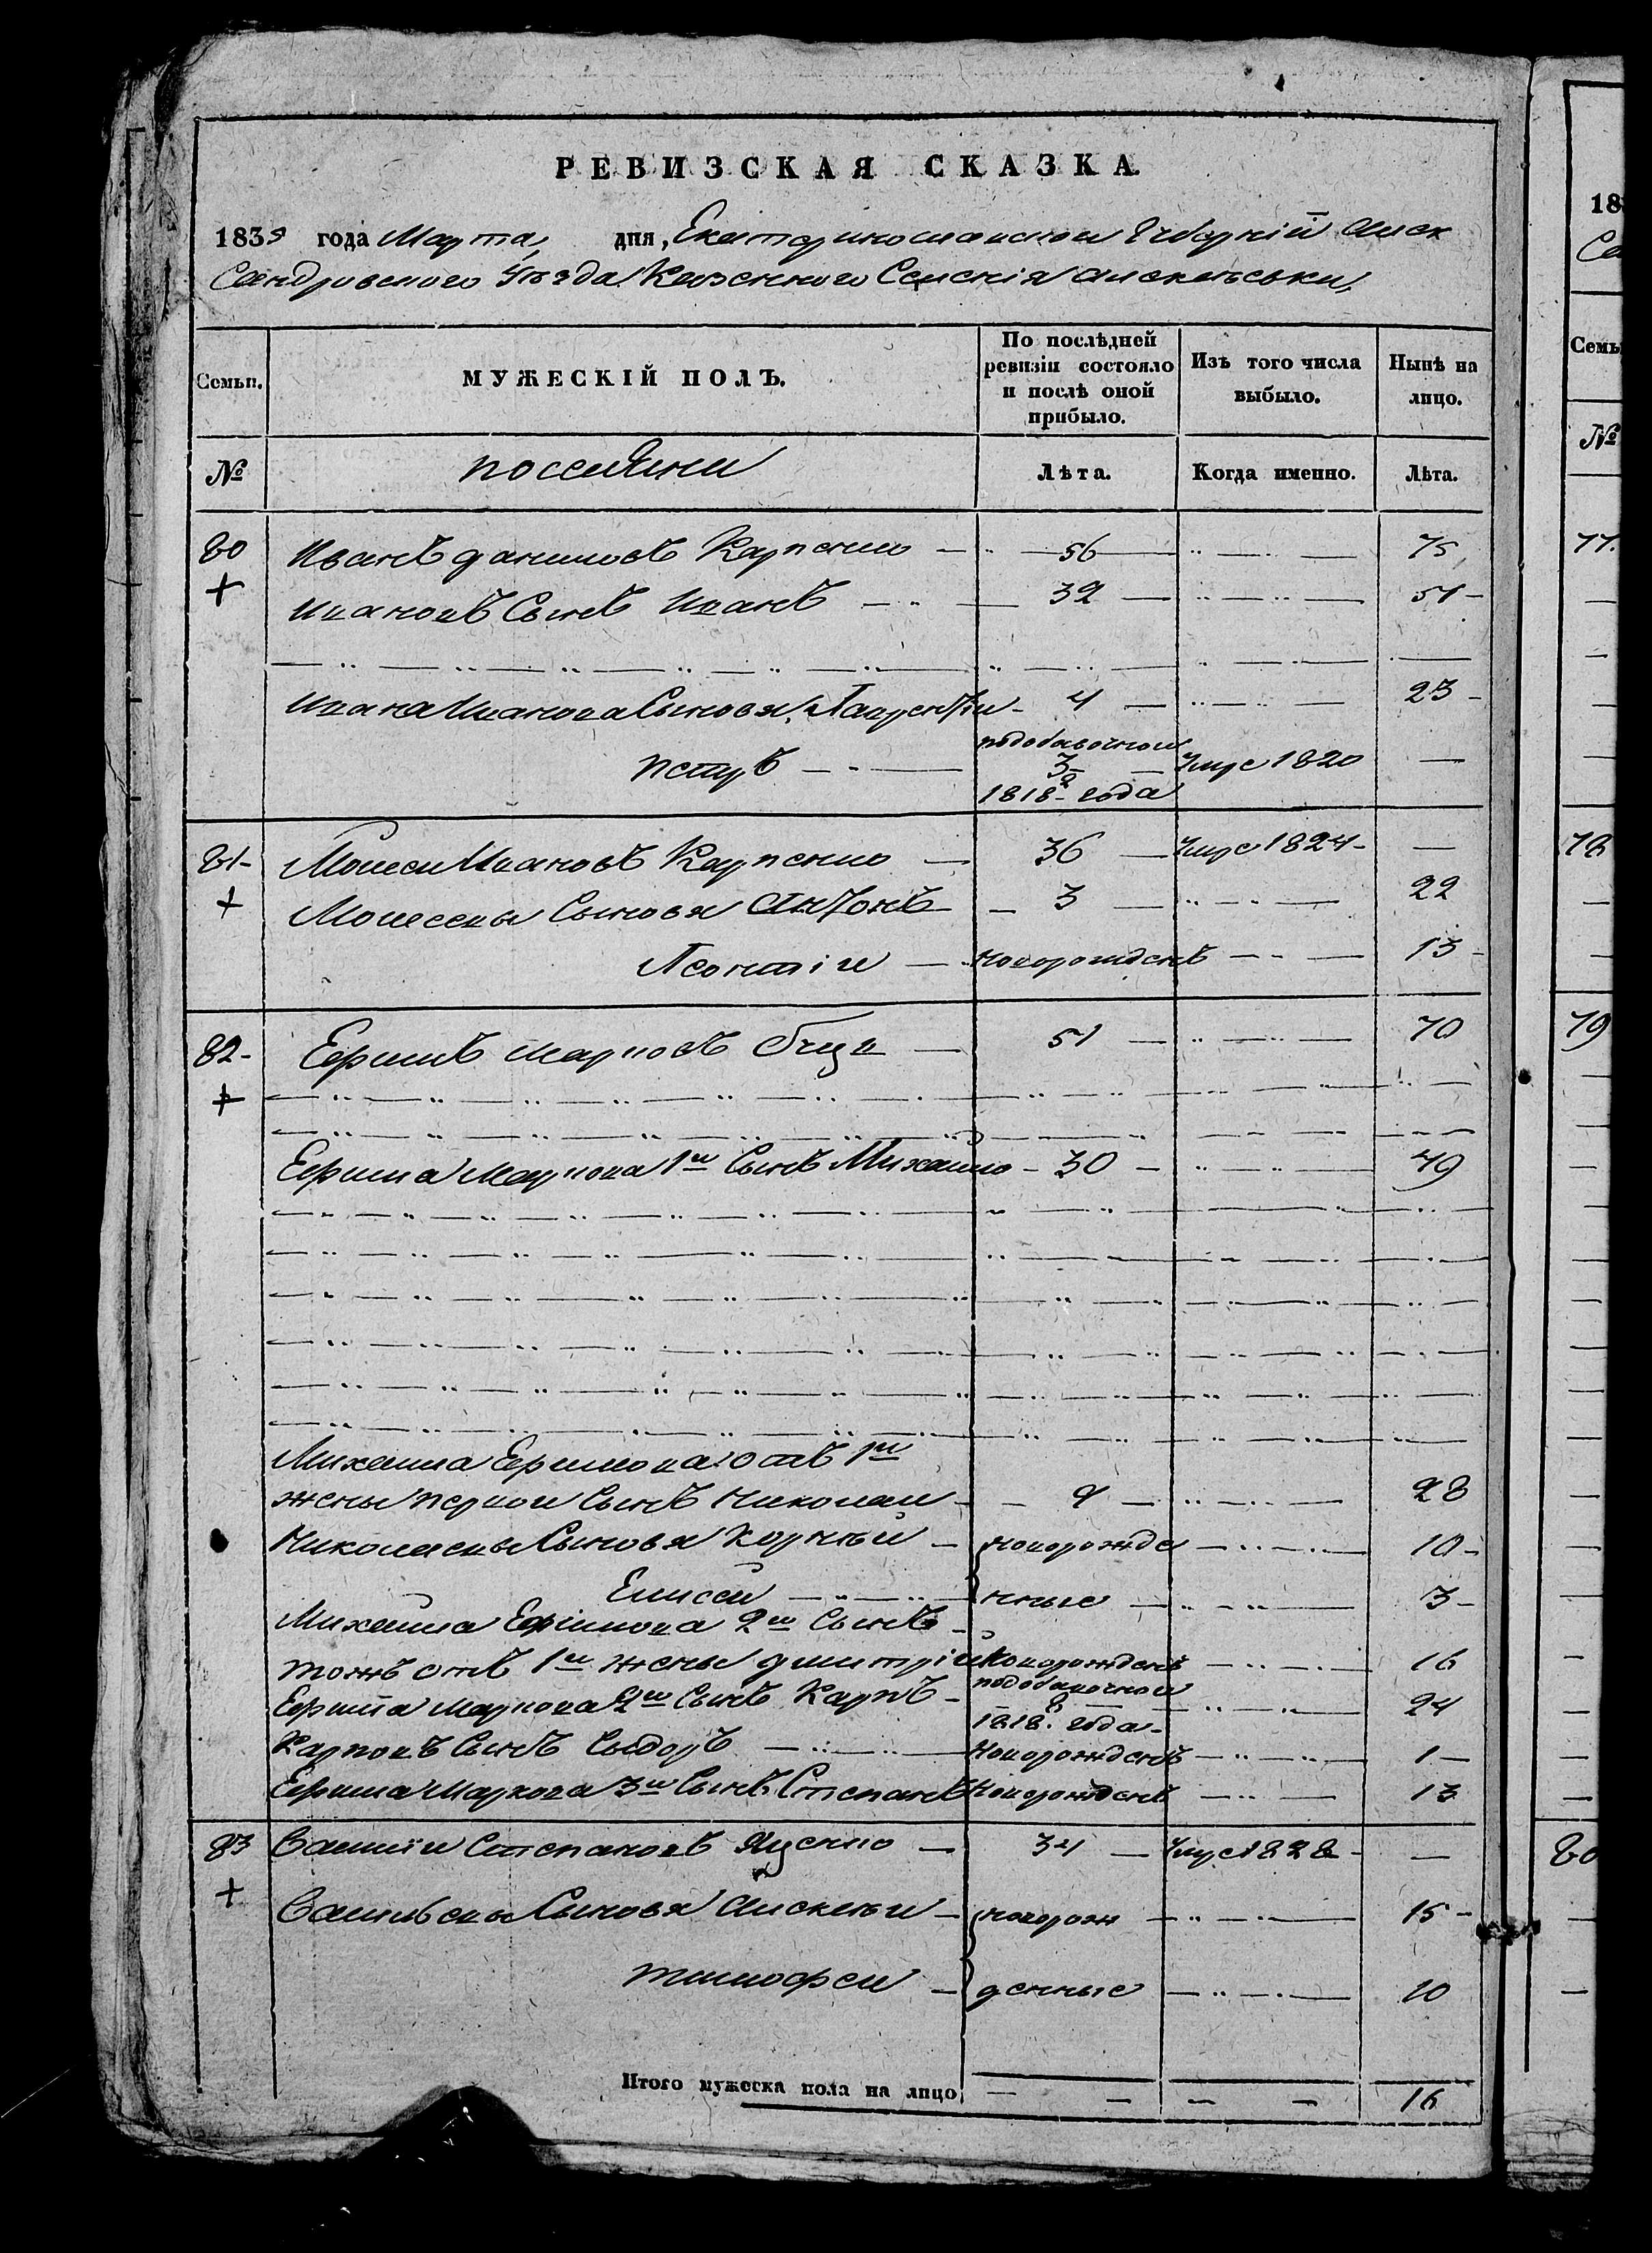 РЕВИЗСКАЯ СКАЗКА.
1835 года Марта, дня, Екатеринославской Губернiй Алек
Сандровского Уѣзда Казенного Селенiя Алексѣевки,
Семьи. МУЖЕСКІЙ ПОЛЪ. По послѣдней ревизіи состояло и послѣ оной прибыло. Изъ того числа выбыло. Нынѣ на лицо.
№ поселяни Лѣта. Когда именно. Лѣта.
80 Иванъ даниловъ Карпенко — 56 75
+ Ивановъ Сынъ Иванъ — 32 51
Ивана Иванова Сыновя, Лаврентѣи 4 23
петръ — подобавочной 3 1818 года Умре 1820 —
81 Моисеи Ивановъ Карпенко — 36 Умре 1824 —
+ Моисеевы Сыновя Антонъ — 3 22
Леонтiи — новорожденъ 13
82 Ефимъ марковъ 51 70
+
Ефима Маркова 1й Сынъ Михайло 30 49
Михаила Ефимова отъ 1й
жены первои Сынъ Николаи 9 28
Николаевы Сыновя Корнѣй новорожде 10
Елисей нные 3
Михаила Ефiмова 2й Сынъ
тожъ отъ 1й жены дмитрiй Новорожденъ 16
Ефима Маркова 2й Сынъ Карпъ подобавочной 8 1818 года 24
Карповъ Сынъ Сыдоръ Новорожденъ 1
Ефима Маркова 3й Сынъ Степанъ Новорожденъ 13
83 Василiи Степановъ Яценко — 34 Умре 1828 —
+ Васильевы Сыновя Алексѣи новорож 15
тимофеи денные 10
Итого мужеска пола на лицо 16
18
Са
Семь
№
77.
78
79
80